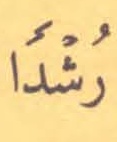 رُشْدًا